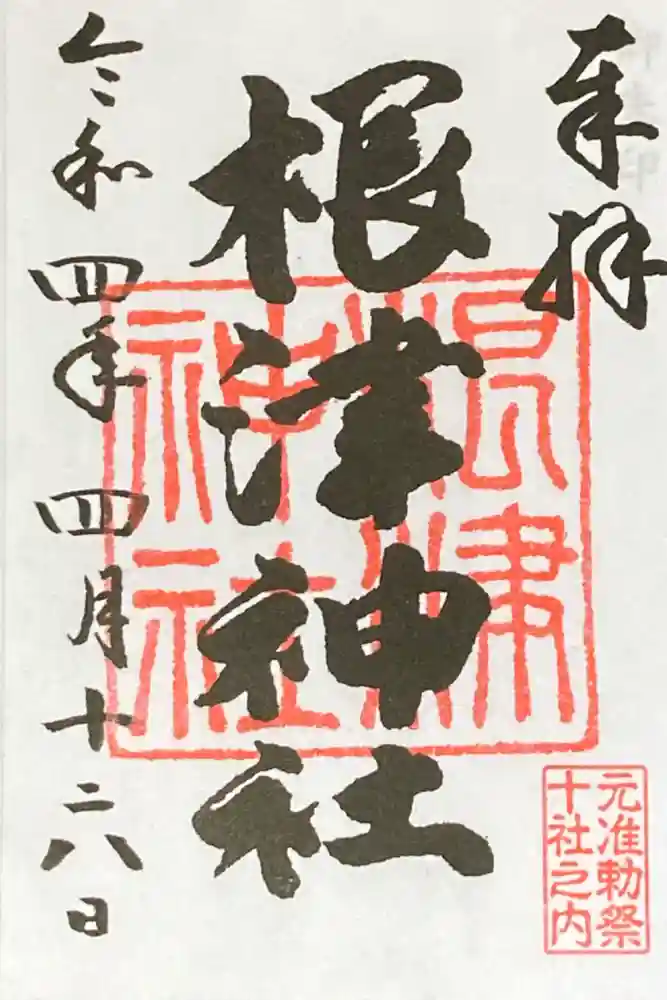 奉拝
根津神社
令和四年四月十六日
根津
神社
元准勅祭
十社之内